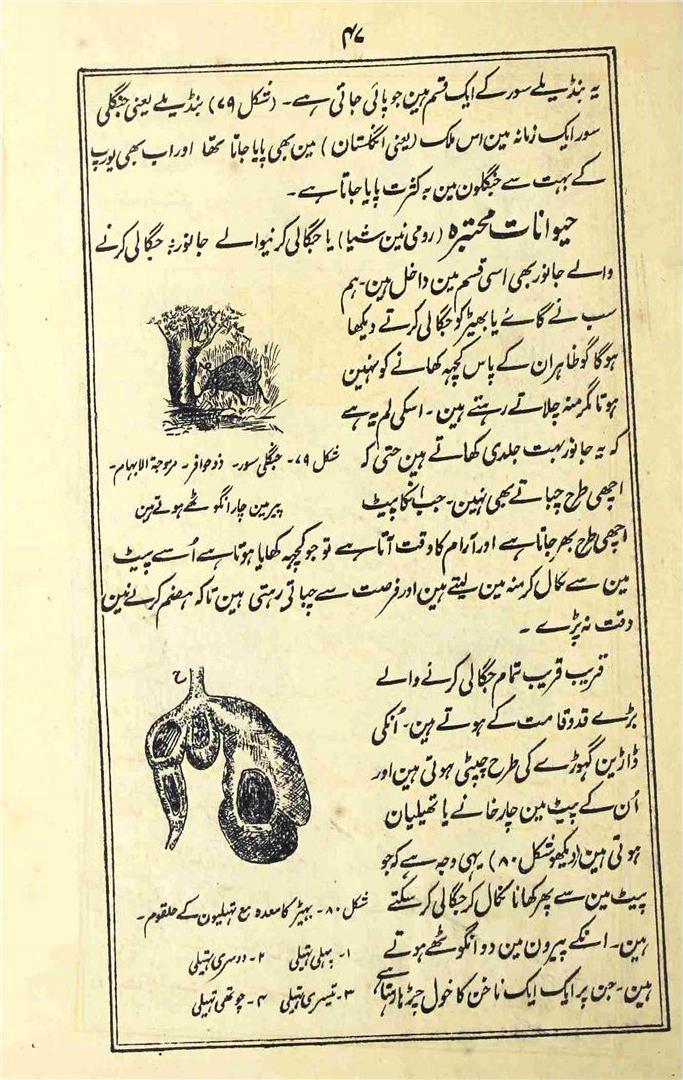 ۴۷
یہ بنڈیلے سور کے ایک قسم ہین جو پائی جاتی ہے۔ (شکل ۷۹) بنڈیلے یعنی جنگلی
سور ایک زمانہ مین اس ملک (یعنی انگلستان) مین بھی پایا جاتا تھا اور اب بھی یورپ
کے بہت سے جنگلون مین بہ کثرت پایا جاتا ہے۔
حیوانات مجترہ (رومی نین شیا) یا جگالی کرنیوالے جانور: جگالی کرنے
والے جانور بھی اسی قسم مین داخل ہین۔ ہم
سب نے گائے یا بھیڑ کو جگالی کرتے دیکھا
ہوگا گو ظاہر ان کے پاس کچہہ کھانے کو نہین
ہوتا مگر منہ چلاتے رہتے ہین۔ اسکی لم یہ ہے
کہ یہ جانور بہت جلدی کھاتے ہین حتی کہ
اچھی طرح چباتے بھی نہین۔ جب انکا پیٹ
شکل ۷۹۔ جنگلی سور۔ ذوحافر۔ مزوجۃ الابہام۔
پیر مین چار انگوٹھے ہوتے ہین
اچھی طرح بھر جاتا ہے اور آرام کا وقت آتا ہے تو جو کچہہ کھایا ہوتا ہے اُسے پیٹ
مین سے نکال کر منہ مین لیتے ہین اور فرصت سے چباتی رہتی ہین تاکہ ہضم کرنے مین
دقت نہ پڑے۔
قریب قریب تمام جگالی کرنے والے
بڑے قد و قامت کے ہوتے ہین۔ اُنکی
ڈاڑین گہوڑے کی طرح چپٹی ہوتی ہین اور
اُن کے پیٹ مین چار خانے یا تھیلیان
ہوتی ہین (دیکھو شکل ۸۰) یہی وجہ ہے کہ جو
پیٹ مین سے پھر کھانا نکال کر جگالی کر سکتے
ہین۔ انکے پیرون مین دو انگوٹھے ہوتے
ہین۔ جن پر ایک ایک ناخن کا خول چڑہا ہوتا ہے
ح
شکل ۸۰۔ بہیڑ کا معدہ مع تہلیون کے حلقوم۔
۱۔ پہلی تہیلی ۲۔ دوسری تہیلی
۳۔ تیسری تہیلی ۴۔ چوتھی تہیلی